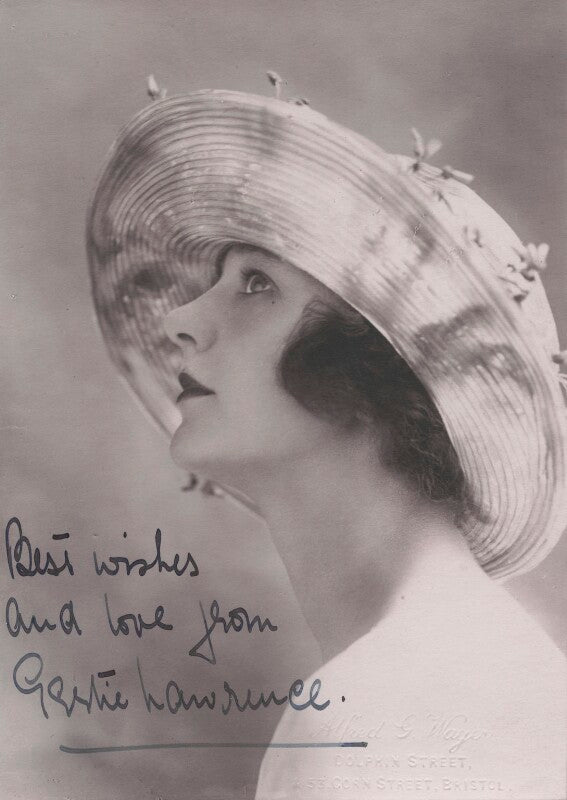 Best wishes
and love from
Gertie Lawrence.
Alfred G.
DOLPHIN STREET,
53, CORN STREET, BRISTOL.